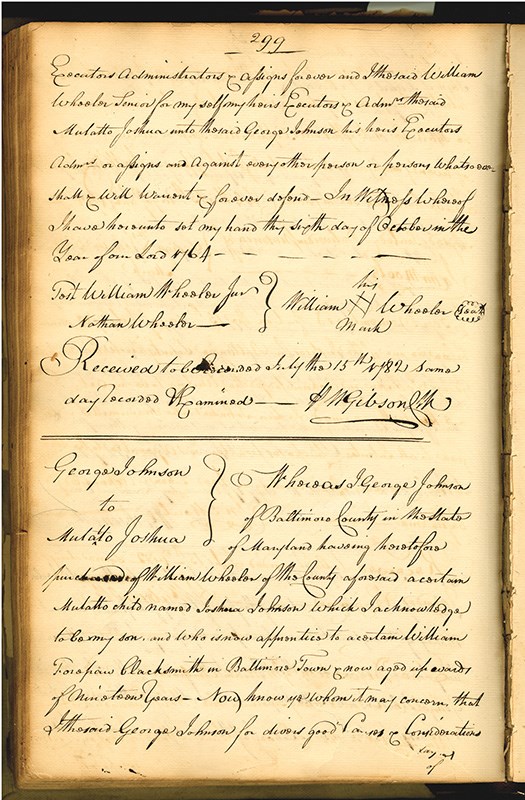 299
Executors Administrators & assigns forever and I the said William
Wheeler Senior for my self my heirs Executors & Admrs the said
Mulatto Joshua unto the said George Johnson his heirs Executors
Admrs or assigns and Against every other person or persons Whatsoever
shall & Will Warrent & forever defend – In Witness Whereof
I have hereunto set my hand this sixth day of October in the
Year of our Lord 1764 –
Test William Wheeler Junr
Nathan Wheeler
his
William Wheeler Seal
Mark
Received to be Recorded July the 15th 1782 same
day recorded & Examined – W Gibson Clk
George Johnson
to
Mulatto Joshua
Whereas I George Johnson
of Baltimore County in the State
of Maryland haveing heretofore
purchased of William Wheeler of the County aforesaid a certain
Mulatto child named Joshua Johnson Which I acknowledge
to be my son, and Who is now apprentice to a certain William
Forepaw Blacksmith in Baltimore Town & now aged upwards
of Nineteen Years – Now know ye whom it may concern, that
I the said George Johnson for divers good Causes & Considerations